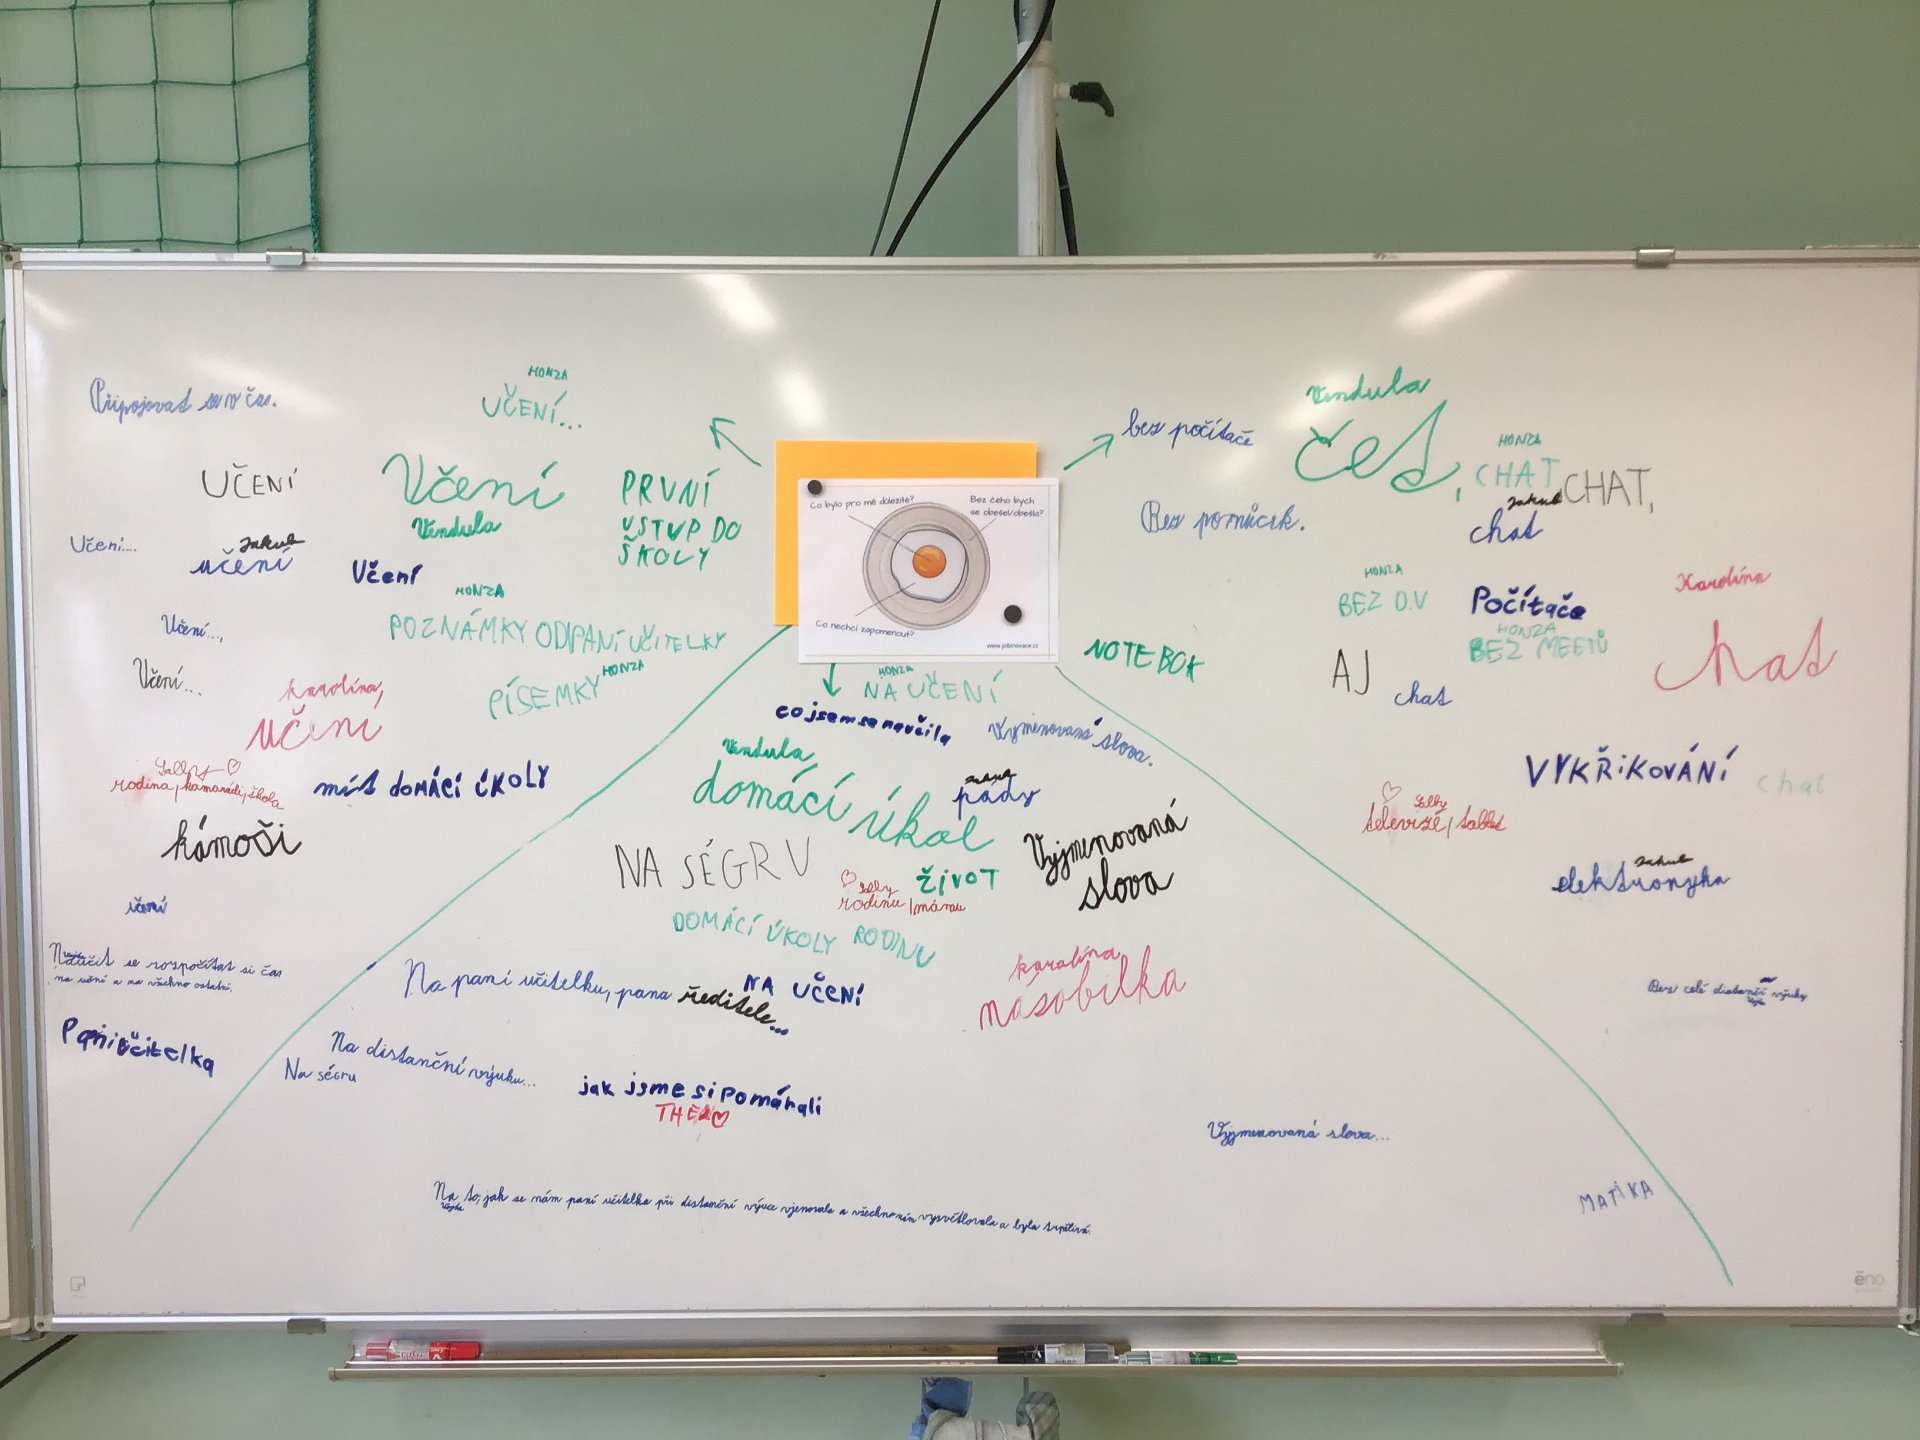 Připojovat se v čas.
HONZA
UČENÍ...
UČENÍ
Učení
Vendula
PRVNÍ
VSTUP DO
ŠKOLY
Učení....
Jakub
učení
Učení
HONZA
POZNÁMKY OD PANÍ UČITELKY
Učení...,
HONZA
PÍSEMKY
Učení...
karolína,
učení
Sally
rodina, kamarádi, škola
mít DOMÁCÍ ÚKOLY
kámoši
učení
Naučit se rozpočítat si čas
na učení a na všechno ostatní.
Paní učitelka
Co bylo pro mě důležité?
Bez čeho bych
se obešel/obešla?
Co nechci zapomenout?
www.jobinovace.cz
HONZA
NA UČENÍ
co jsem se naučila
Vyjmenovaná slova.
Vendula,
domácí úkol
pády
NA SÉGRU
Vyjmenovaná
slova
ŽIVOT
Sally
rodinu
DOMÁCÍ ÚKOLY RODINU
karolína
násobilka
Na paní učitelku, pana ředitele...
NA UČENÍ
Na distanční výuku...
Na ségru
jak jsme si pomáhali
Na to, jak se nám paní učitelka při distanční výuce vjenovala a všechno nám vysvětlovala a byla trpělivá.
bez počítače
Vendula
čet,
HONZA
CHAT
CHAT,
Bez pomůcek.
Jakub
chat
HONZA
BEZ D.V
Počítače
HONZA
BEZ MEETŮ
Karolína
chat
NOTEBOK
AJ
chat
VYKŘIKOVÁNÍ
chat
Sally
televize, tablet
Jakub
elektronyka
Bez celé distanční výuky
Vyjmenovaná slova...
MATIKA
ëno